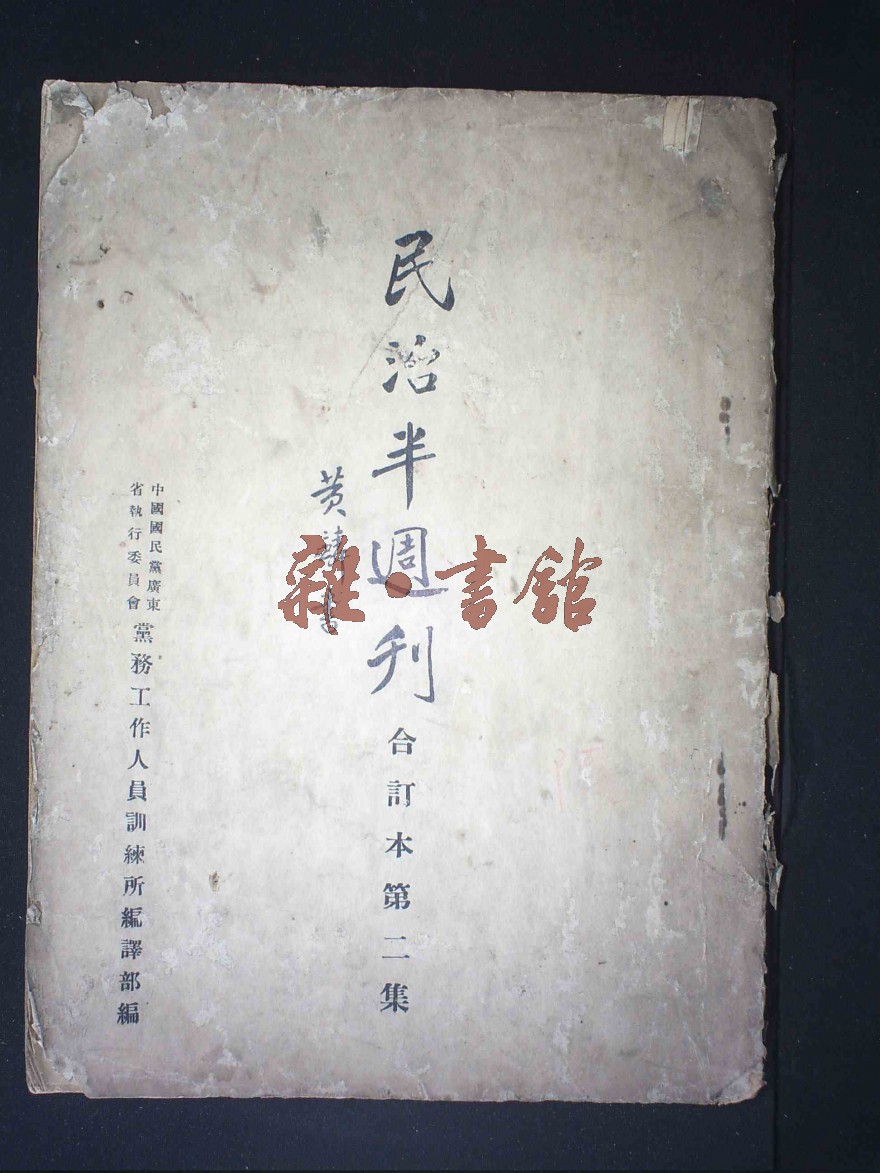 民治半週刊
合訂本第二集
黃
書
中國國民黨廣東
省執行委員會
黨務工作人員訓練所編譯部編
雜·書館